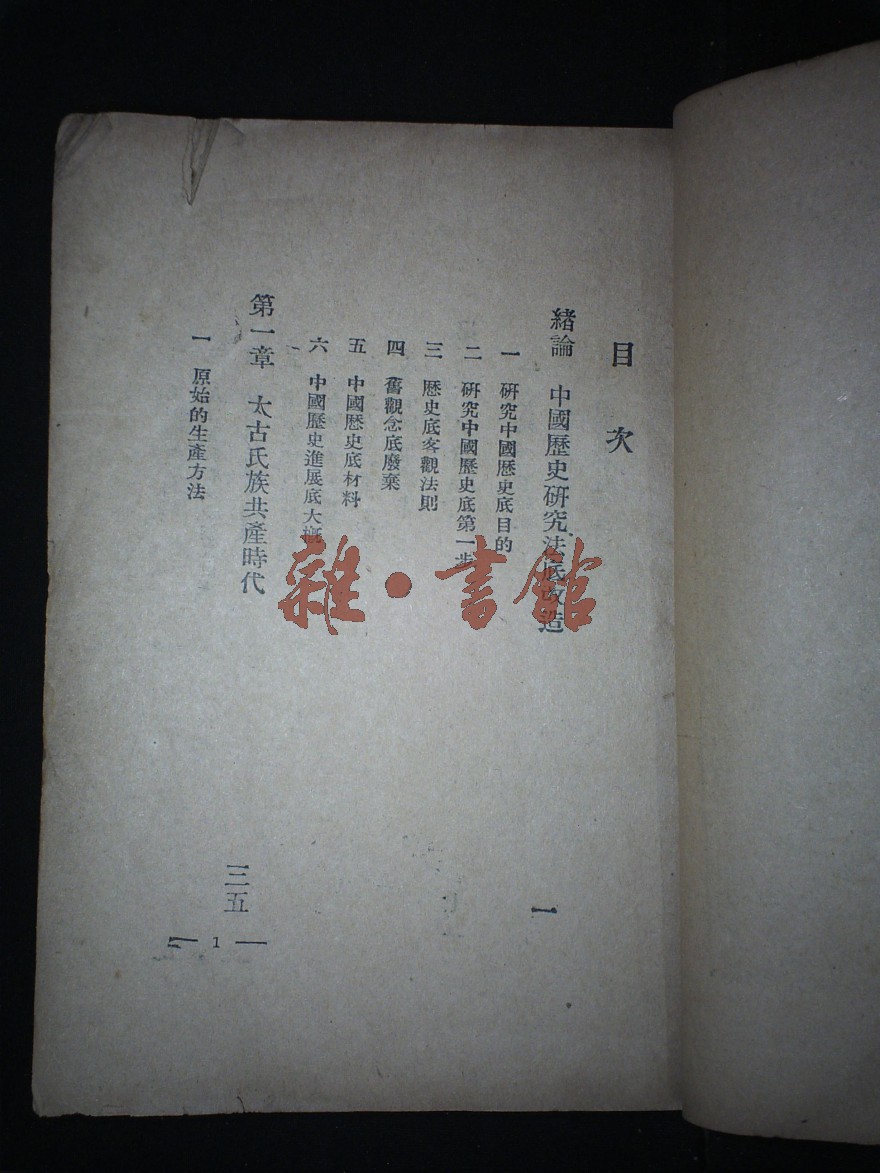 目次
緒論 中國歷史研究法底改造 一
一 研究中國歷史底目的
二 研究中國歷史底第一步
三 歷史底客觀法則
四 舊觀念底廢棄
五 中國歷史底材料
六 中國歷史進展底大概
第一章 太古氏族共產時代 三五
一 原始的生產方法
— 1 —
雜·書館